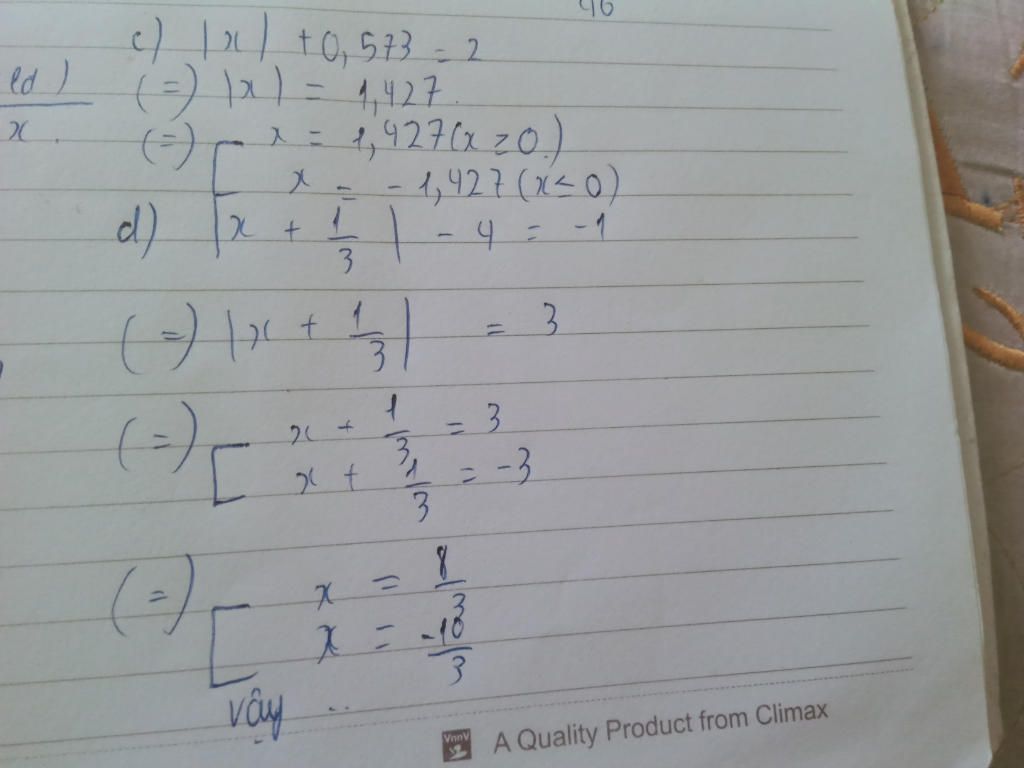 46
c) |x| + 0,573 = 2
ld)
(=) |x| = 1,427.
x.
(=) [ x = 1,427 (x ≥ 0.)
x = -1,427 (x ≤ 0)
d) |x + 1/3| - 4 = -1
(=) |x + 1/3| = 3
(=) [ x + 1/3 = 3
x + 1/3 = -3
(=) [ x = 8/3
x = -10/3
vậy ..
VnnV A Quality Product from Climax